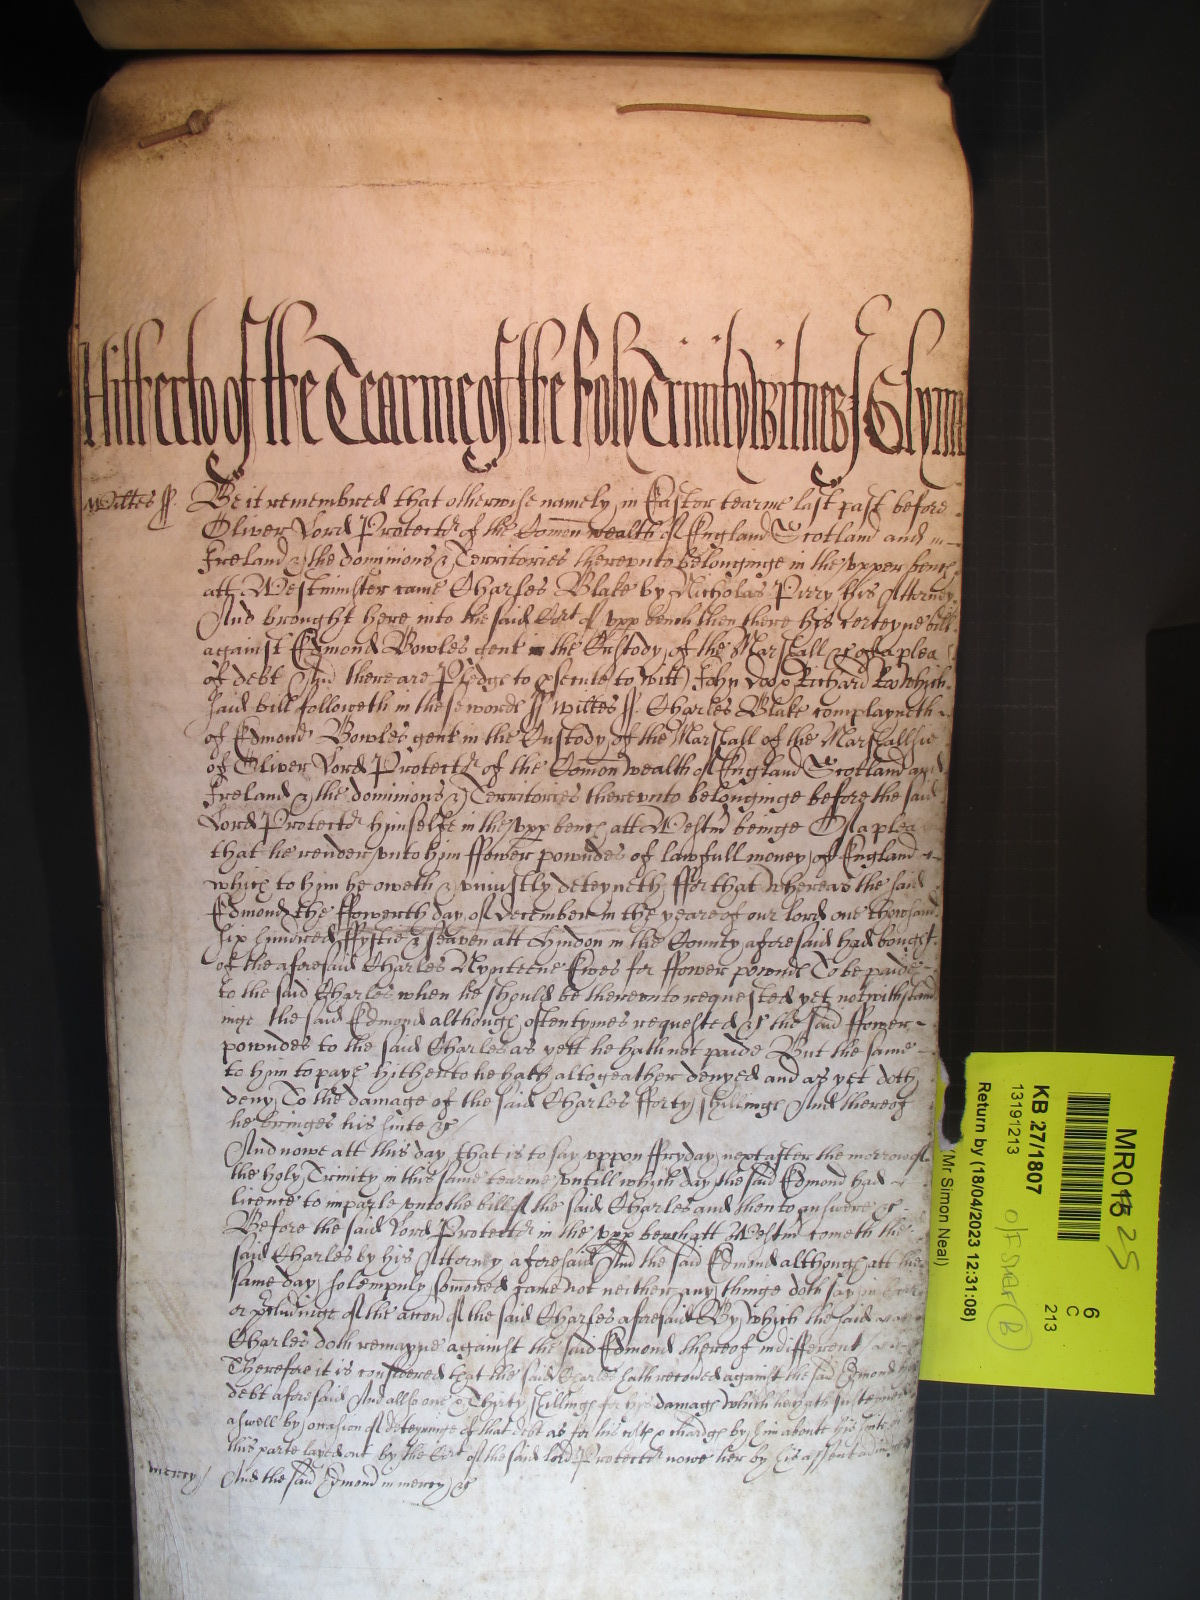 Hitherto of the Tearme of the holy Trinity Witnes J Glynn
Wiltes ss. Be it remembred that otherwise namely in Easter tearme last past before
Oliver Lord Protectr of the Comon wealth of England Scotland and
Ireland & the dominions & Territories therevnto belonginge in the vpper bench
att Westminster came Charles Blake by Nicholas Pirry his Attorney
And brought here into the said Cort of vpp bench then there his certeyne bill
against Edmond Bowles gent in the Custody of the Marshall &c of a plea
of debt And there are Pledge to psecute to witt John Doo & Richard Roo which
said bill followeth in these words ss Wiltes ss. Charles Blake complayneth
of Edmond Bowles gent in the Custody of the Marshall of the Marshallsie
of Oliver Lord Protectr of the Comon wealth of England Scotland and
Ireland & the dominions & Territories therevnto belonginge before the said
Lord Protectr himselfe in the vpp bench att Westm beinge Of a plea
that he render vnto him ffower powndes of lawfull money of England
which to him he oweth & vniustly deteyneth ffor that whereas the said
Edmond the ffowerth day of December in the yeare of our lord one thowsand
six hundred ffyftie & seaven att Hyndon in the County aforesaid had bought
of the aforesaid Charles Nynteene Ewes for ffower pownd To be paide
to the said Charles when he should be therevnto requested yet notwithstand
inge the said Edmond although oftentymes requested &c the said ffower
powndes to the said Charles as yett he hath not paide But the same
to him to paye hitherto he hath altogeather denyed and as yet doth
deny To the damage of the said Charles fforty shillings And thereof
he bringes his suite &c
And nowe att this day that is to say vppon ffryday next after the morrow of
the holy Trinity in this same tearme vntill which day the said Edmond had
licence to imparle vnto the bill of the said Charles and then to answere &c
Before the said Lord Protectr in the vpp bench att Westm cometh the
said Charles by his Attorney aforesaid And the said Edmond although att the
same day solempnly somoned came not neither any thinge doth say in
or pcludinge of the accon of the said Charles aforesaid By which the said
Charles doth remayne against the said Edmond thereof indifferent
Therefore it is considered that the said Charles hath recoued against the said Edmond his
debt aforesaid And allso one & Thirty shillings for his damage which he hath susteyned
aswell by occasion of deteyninge of that debt as for his costs & chardge by him aboute his suite in
this parte layed out by the Cort of the said lord Protectr nowe her by his assent
mercy And the said Edmond in mercy &c
MR018 25
6
C
213
KB 27/1807
13191213
Return by (18/04/2023 12:31:08)
(Mr Simon Neal)